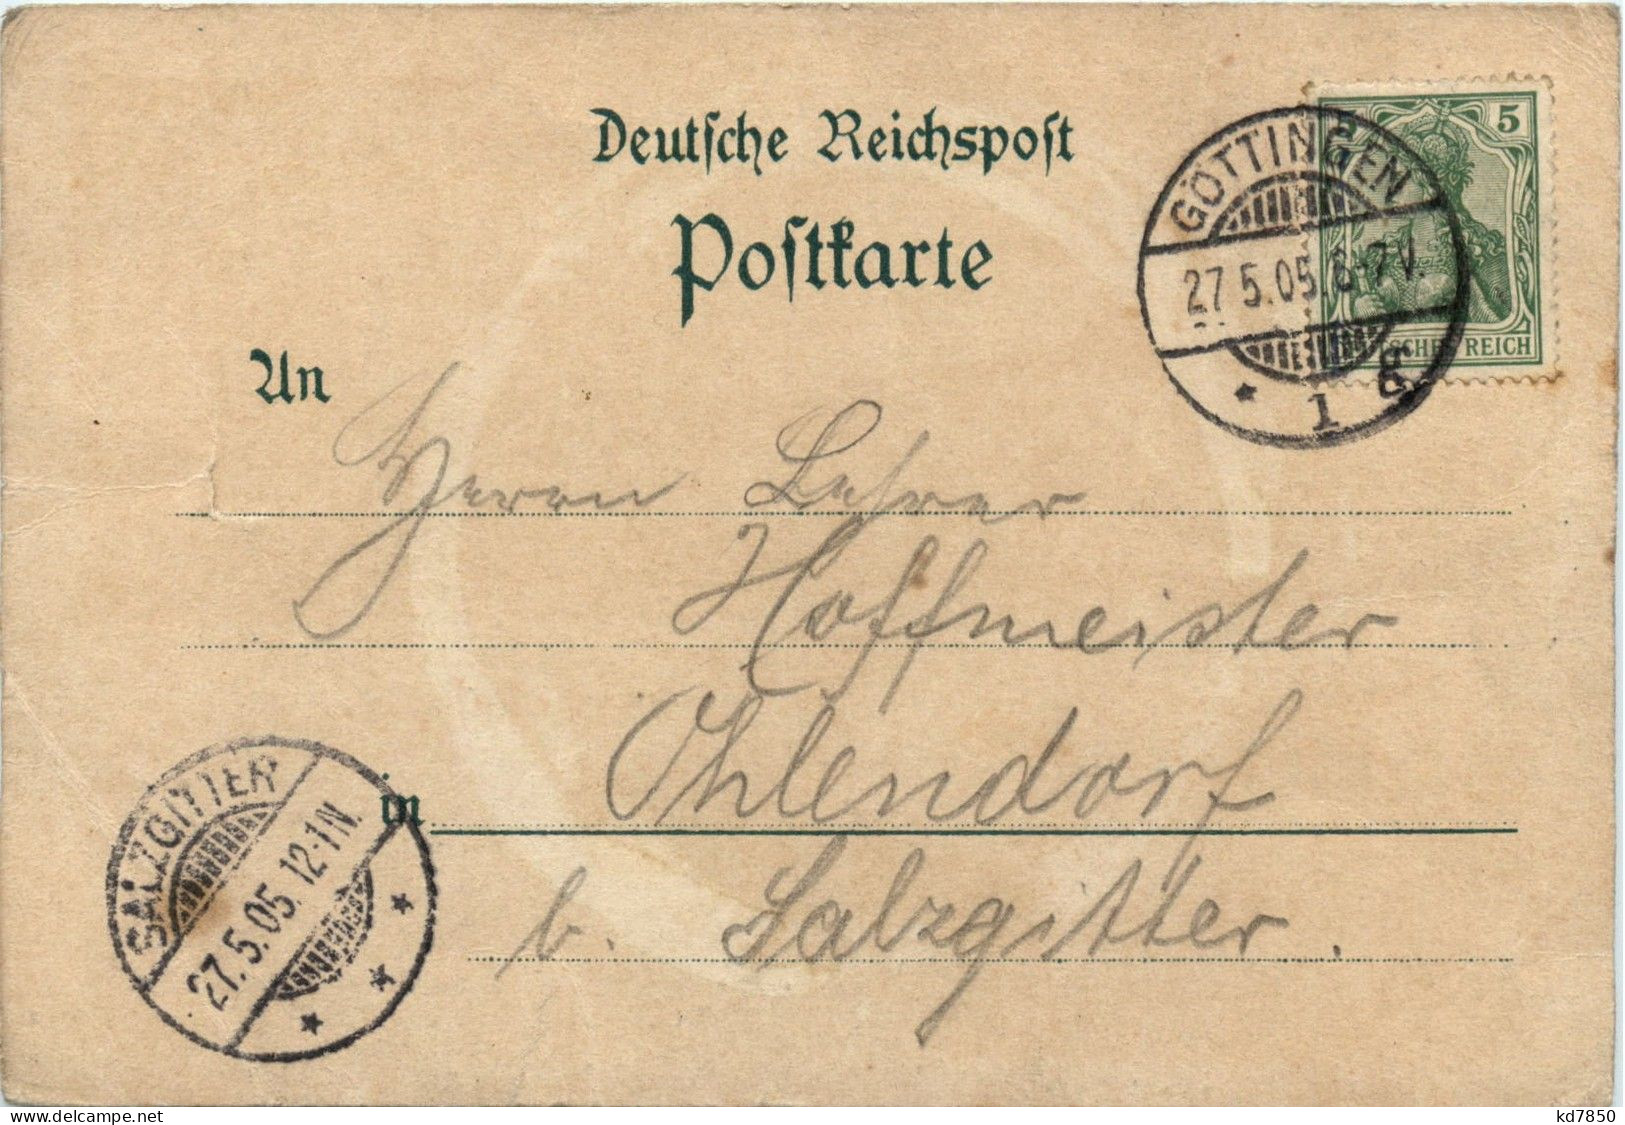 Deutsche Reichspost
Postkarte
GÖTTINGEN
27.5.05.6-7V.
* 1 g
5
DEUTSCHES REICH
An
Herrn Lehrer
Hoffmeister
in Ohlendorf
b. Salzgitter.
SALZGITTER
27.5.05. 12-1N.
* * *
delcampe.net
kd7850